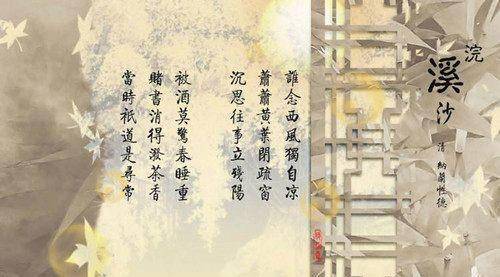 浣溪沙
清 納蘭性德
誰念西風獨自涼
蕭蕭黃葉閉疏窗
沉思往事立殘陽
被酒莫驚春睡重
賭書消得潑茶香
當時祇道是尋常